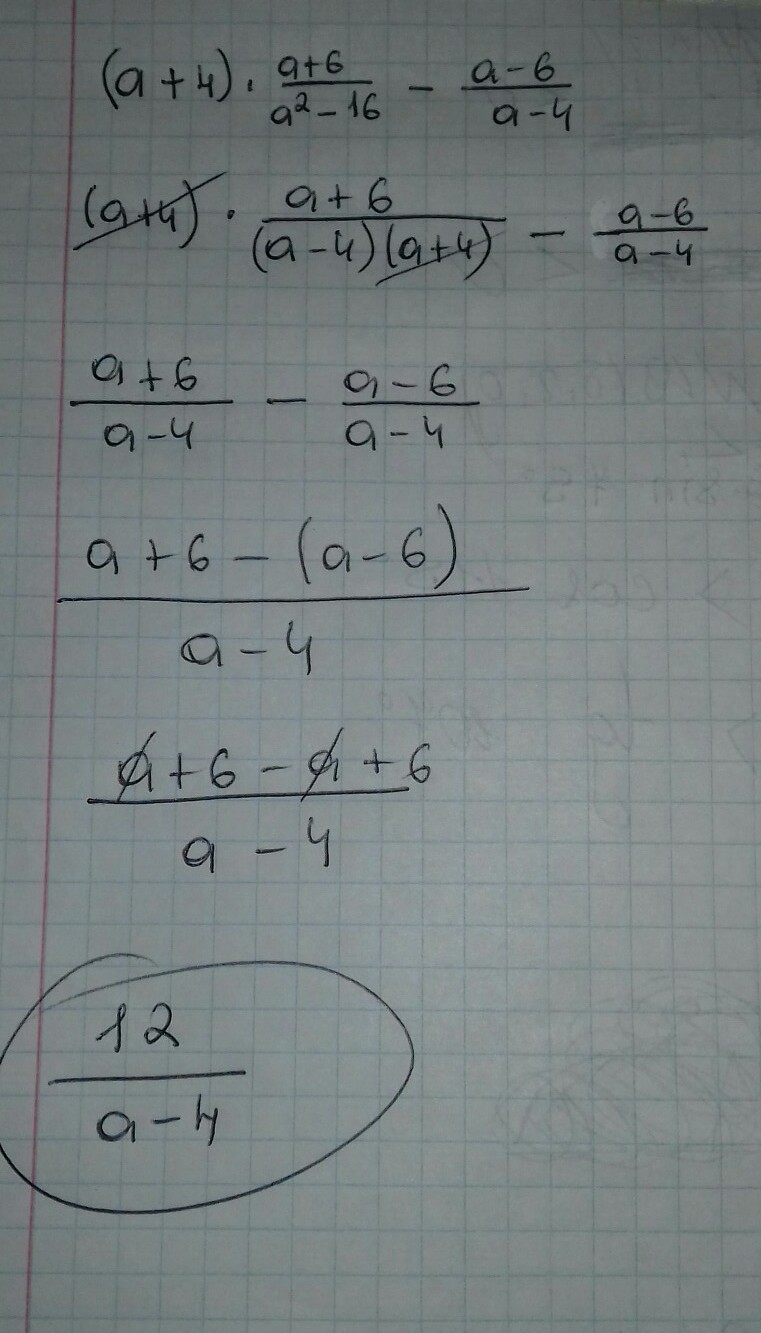 (a+4) · \frac{a+6}{a²-16} - \frac{a-6}{a-4}
(a+4) · \frac{a+6}{(a-4)(a+4)} - \frac{a-6}{a-4}
\frac{a+6}{a-4} - \frac{a-6}{a-4}
\frac{a+6-(a-6)}{a-4}
\frac{a+6-a+6}{a-4}
\frac{12}{a-4}